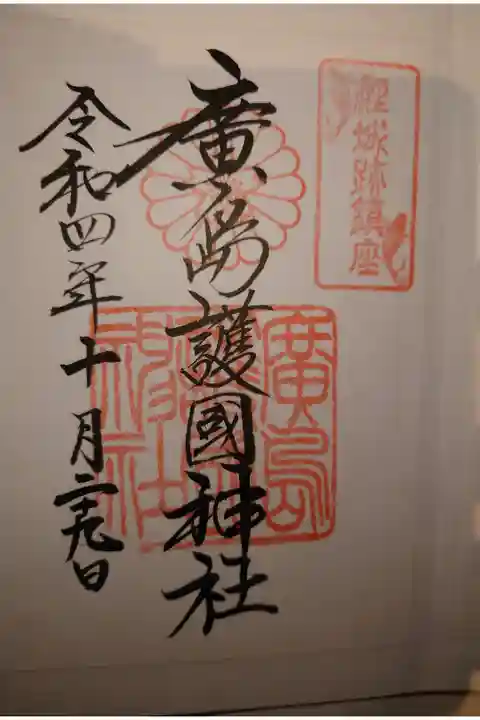 鯉城跡鎮座
廣島護國神社
廣島護國神社
令和四年十月二十九日